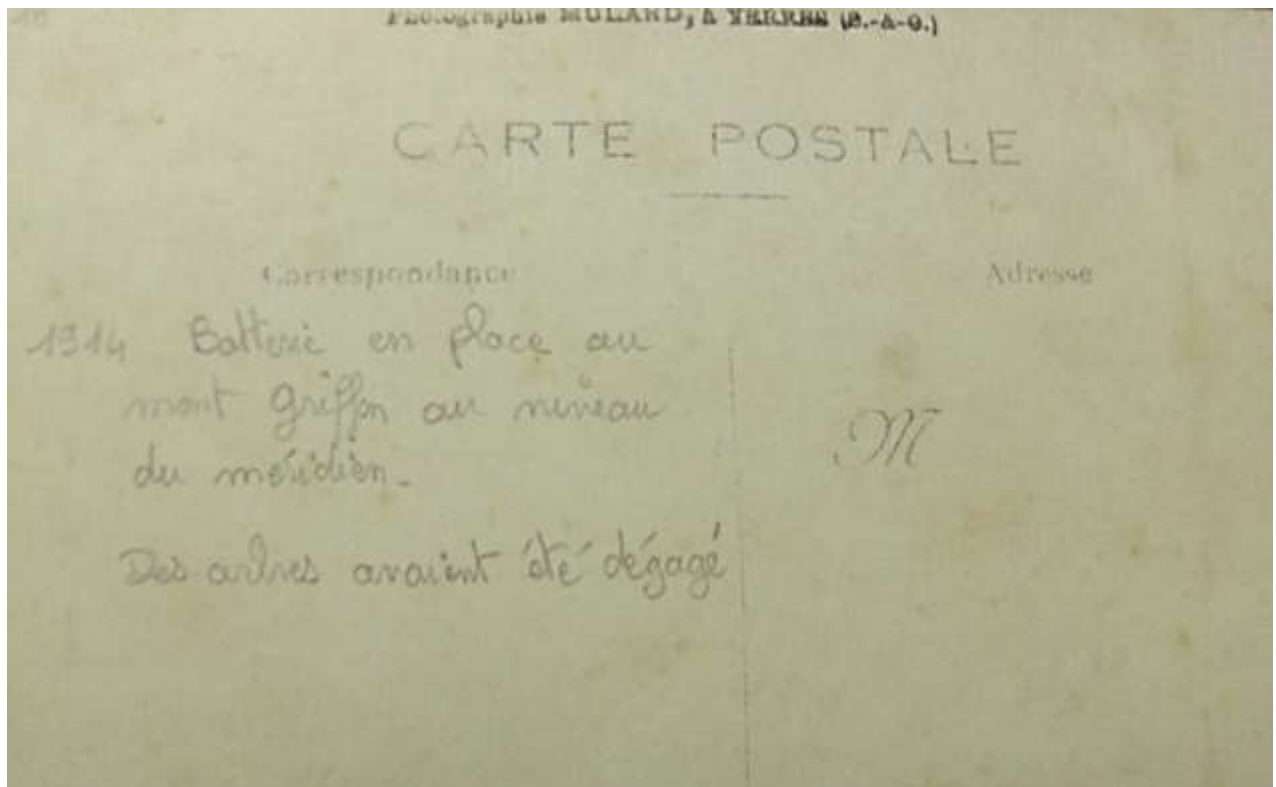 Photographie MULARD, A YERRES (S.-&-O.)
CARTE POSTALE
Correspondance
Adresse
1914 Batterie en place au
mont Griffon au niveau
du méridien_
M
Des arbres avaient été dégagé